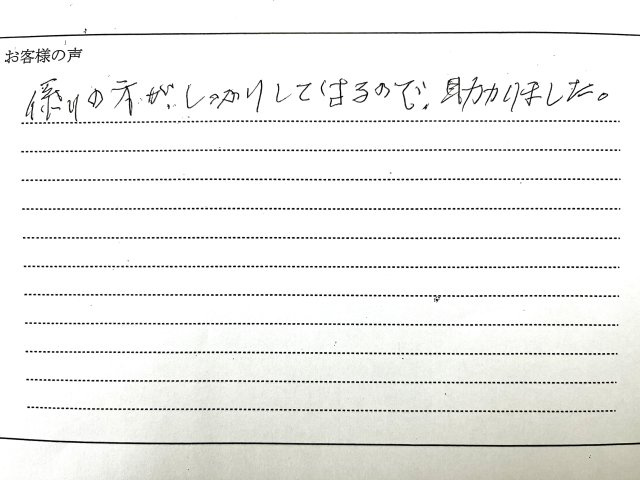 お客様の声
係りの方が、しっかりしてはるので、助かりました。